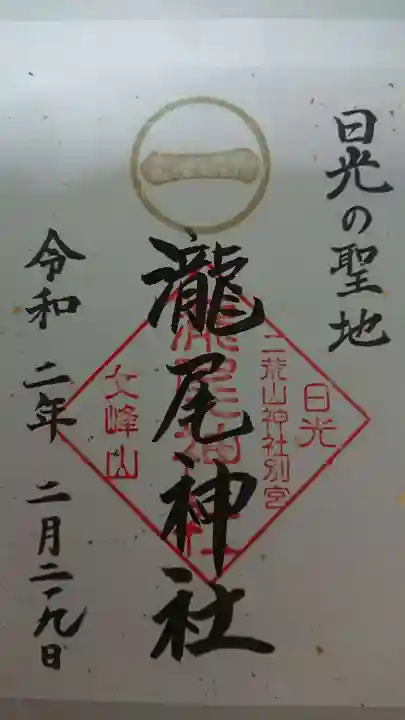 日光の聖地
一
瀧尾神社
令和二年二月二十九日
日光
二荒山神社別宮
瀧尾神社
女峰山